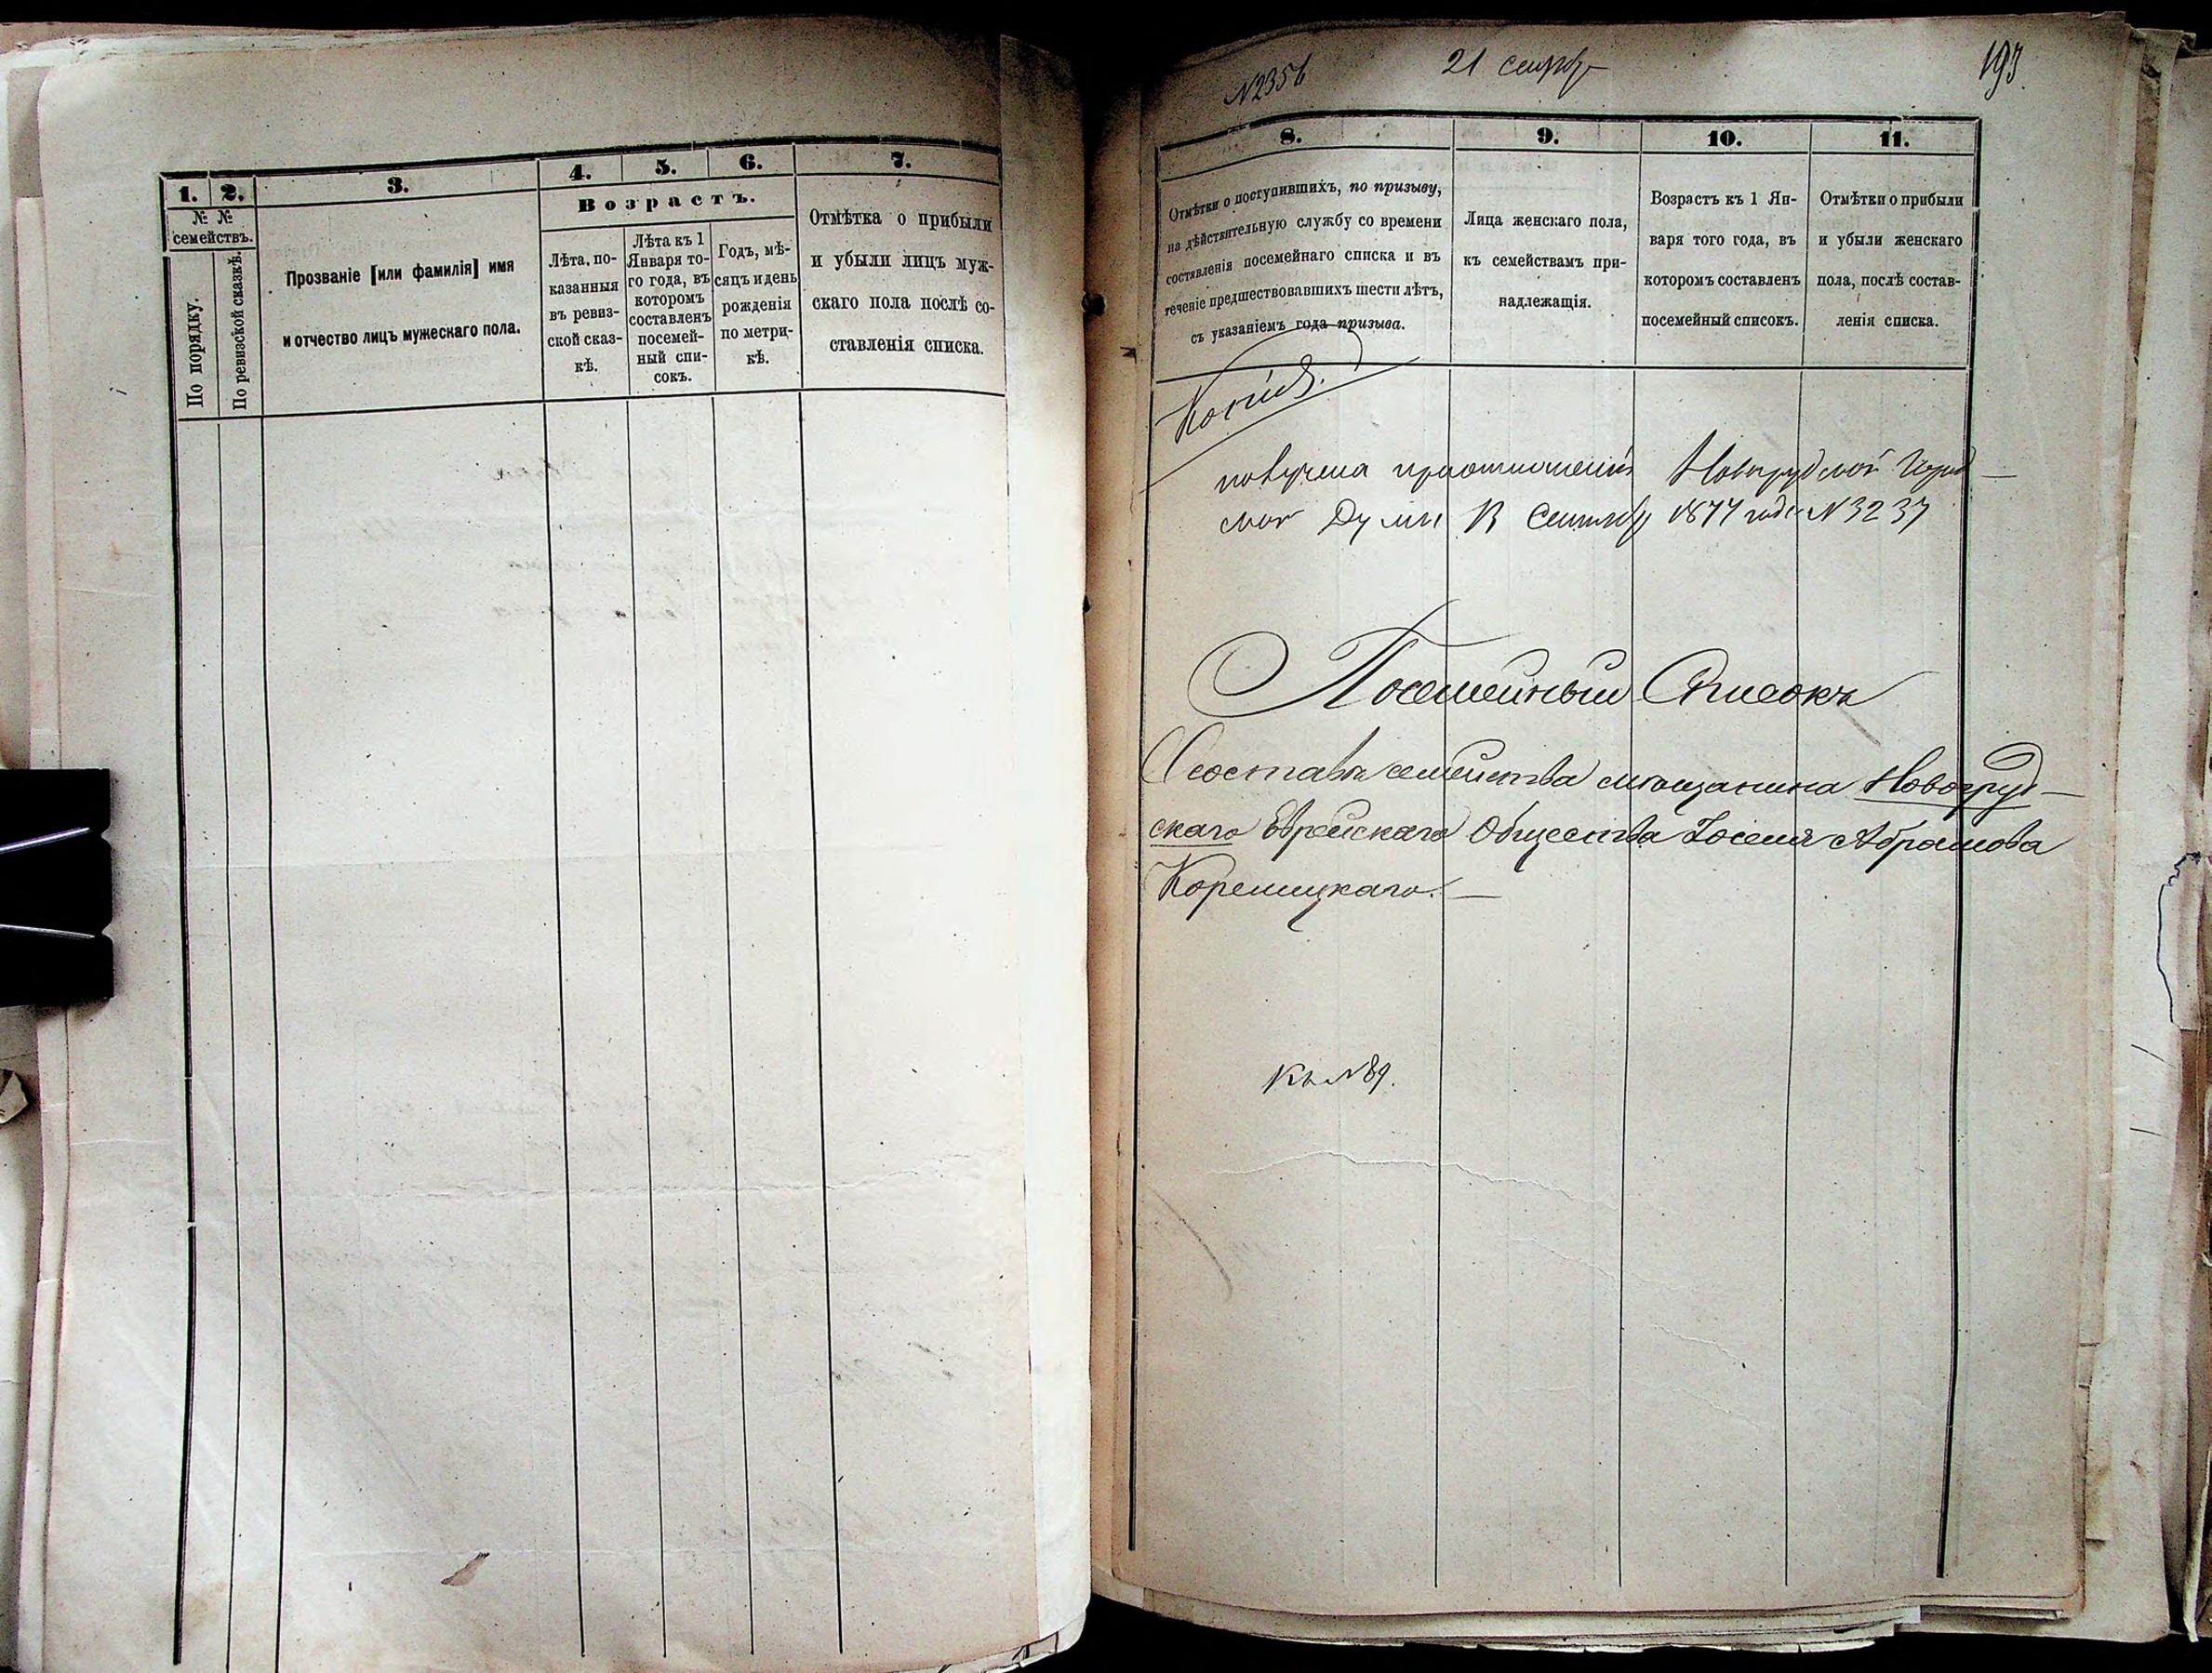 1. 2. 3. 4. 5. 6. 7.
№ № семействъ.
По порядку.
По ревизской сказкѣ.
Прозваніе [или фамилія] имя
и отчество лицъ мужескаго пола.
Возрастъ.
Лѣта, по-
казанныя
въ ревиз-
ской сказ-
кѣ.
Лѣта къ 1
Января то-
го года, въ
котором‌ъ
составленъ
посемей-
ный спи-
сокъ.
Годъ, мѣ-
сяцъ и день
рожденія
по метри-
кѣ.
Отмѣтка о прибыли
и убыли лицъ муж-
скаго пола послѣ со-
ставленія списка.
№2356 21 193.
8. 9. 10. 11.
Отмѣтки о поступившихъ, по призыву,
на дѣйствительную службу со времени
составленія посемейнаго списка и въ
теченіе предшествовавшихъ шести лѣтъ,
съ указаніемъ года призыва.
Лица женскаго пола,
къ семействамъ при-
надлежащія.
Возрастъ къ 1 Ян-
варя того года, въ
которомъ составленъ
посемейный списокъ.
Отмѣтки о прибыли
и убыли женскаго
пола, послѣ состав-
ленія списка.
Копія.
получена при отношеніи Новогрудской Город-
ской Думы Сентяб 1877 года №3237
Посемейный Списокъ
О составѣ семейства мѣщанина Новогруд-
скаго Еврейскаго Общества Іоселя Абрамова
Корелицкаго. —
Къ №89.